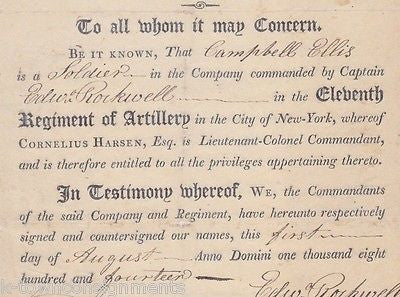 To all whom it may Concern.
BE IT KNOWN, That Campbell Ellis
is a Soldier in the Company commanded by Captain
Edwd Rockwell in the Eleventh
Regiment of Artillery in the City of New-York, whereof
CORNELIUS HARSEN, Esq. is Lieutenant-Colonel Commandant,
and is therefore entitled to all the privileges appertaining thereto.
In Testimony whereof, WE, the Commandants
of the said Company and Regiment, have hereunto respectively
signed and countersigned our names, this first
day of August Anno Domini one thousand eight
hundred and fourteen
Edwd Rockwell
© k-townconsignments